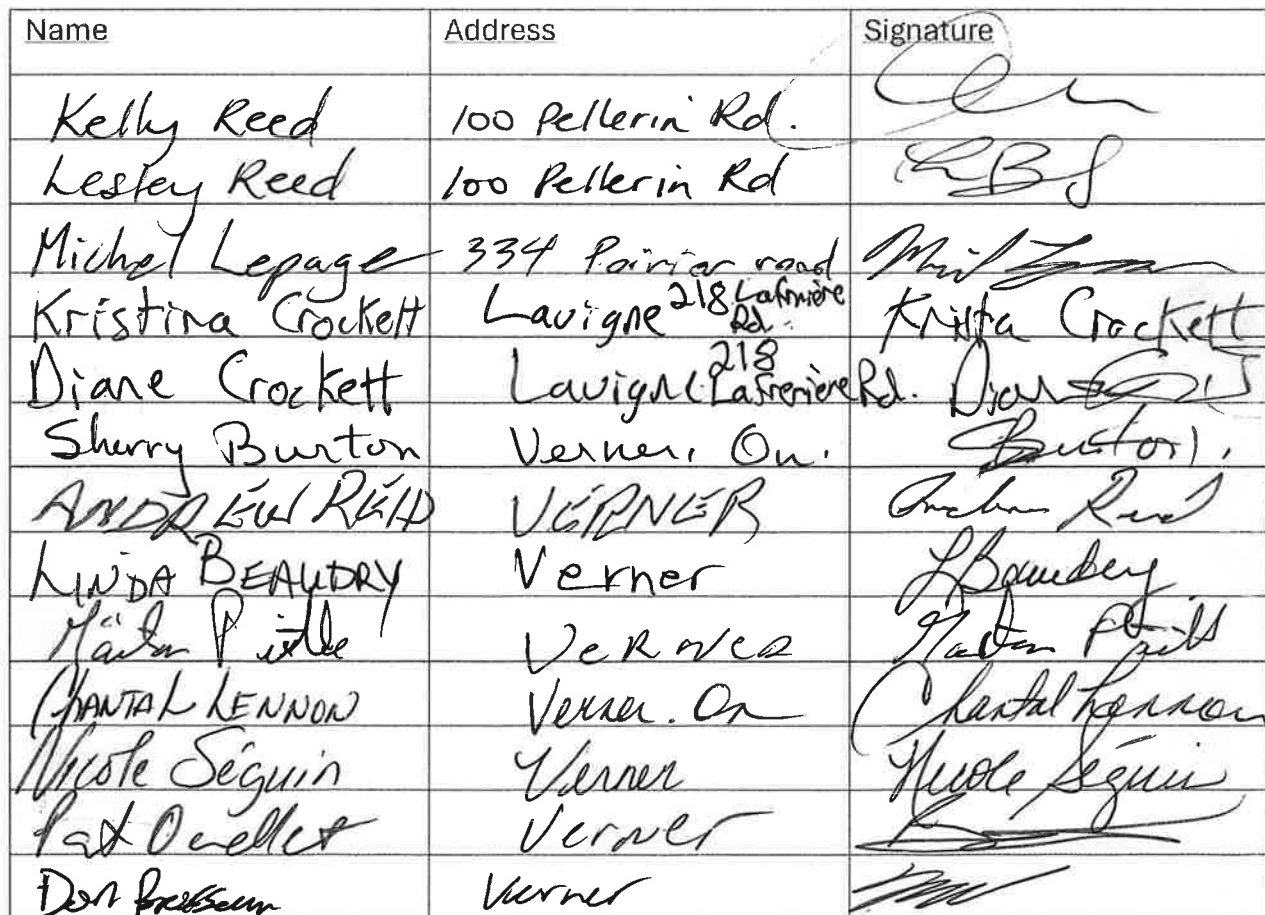 Name Address Signature
Kelly Reed 100 Pellerin Rd.
Lesley Reed 100 Pellerin Rd
Michel Lepage 334 Poirier road
Kristina Crockett Lavigne 218 Lafrenière Rd. Krista Crockett
Diane Crockett Lavigne 218 Lafrenière Rd. Dian
Sherry Burton Verner, On. Burton
ANDREW REID VERNER Reid
LINDA BEAUDRY Verner L Beaudry
Verner
CHANTAL LENNON Verner. On Chantal Lennon
Nicole Séguin Verner Nicole Séguin
Pat Ouellet Verner
Don Verner